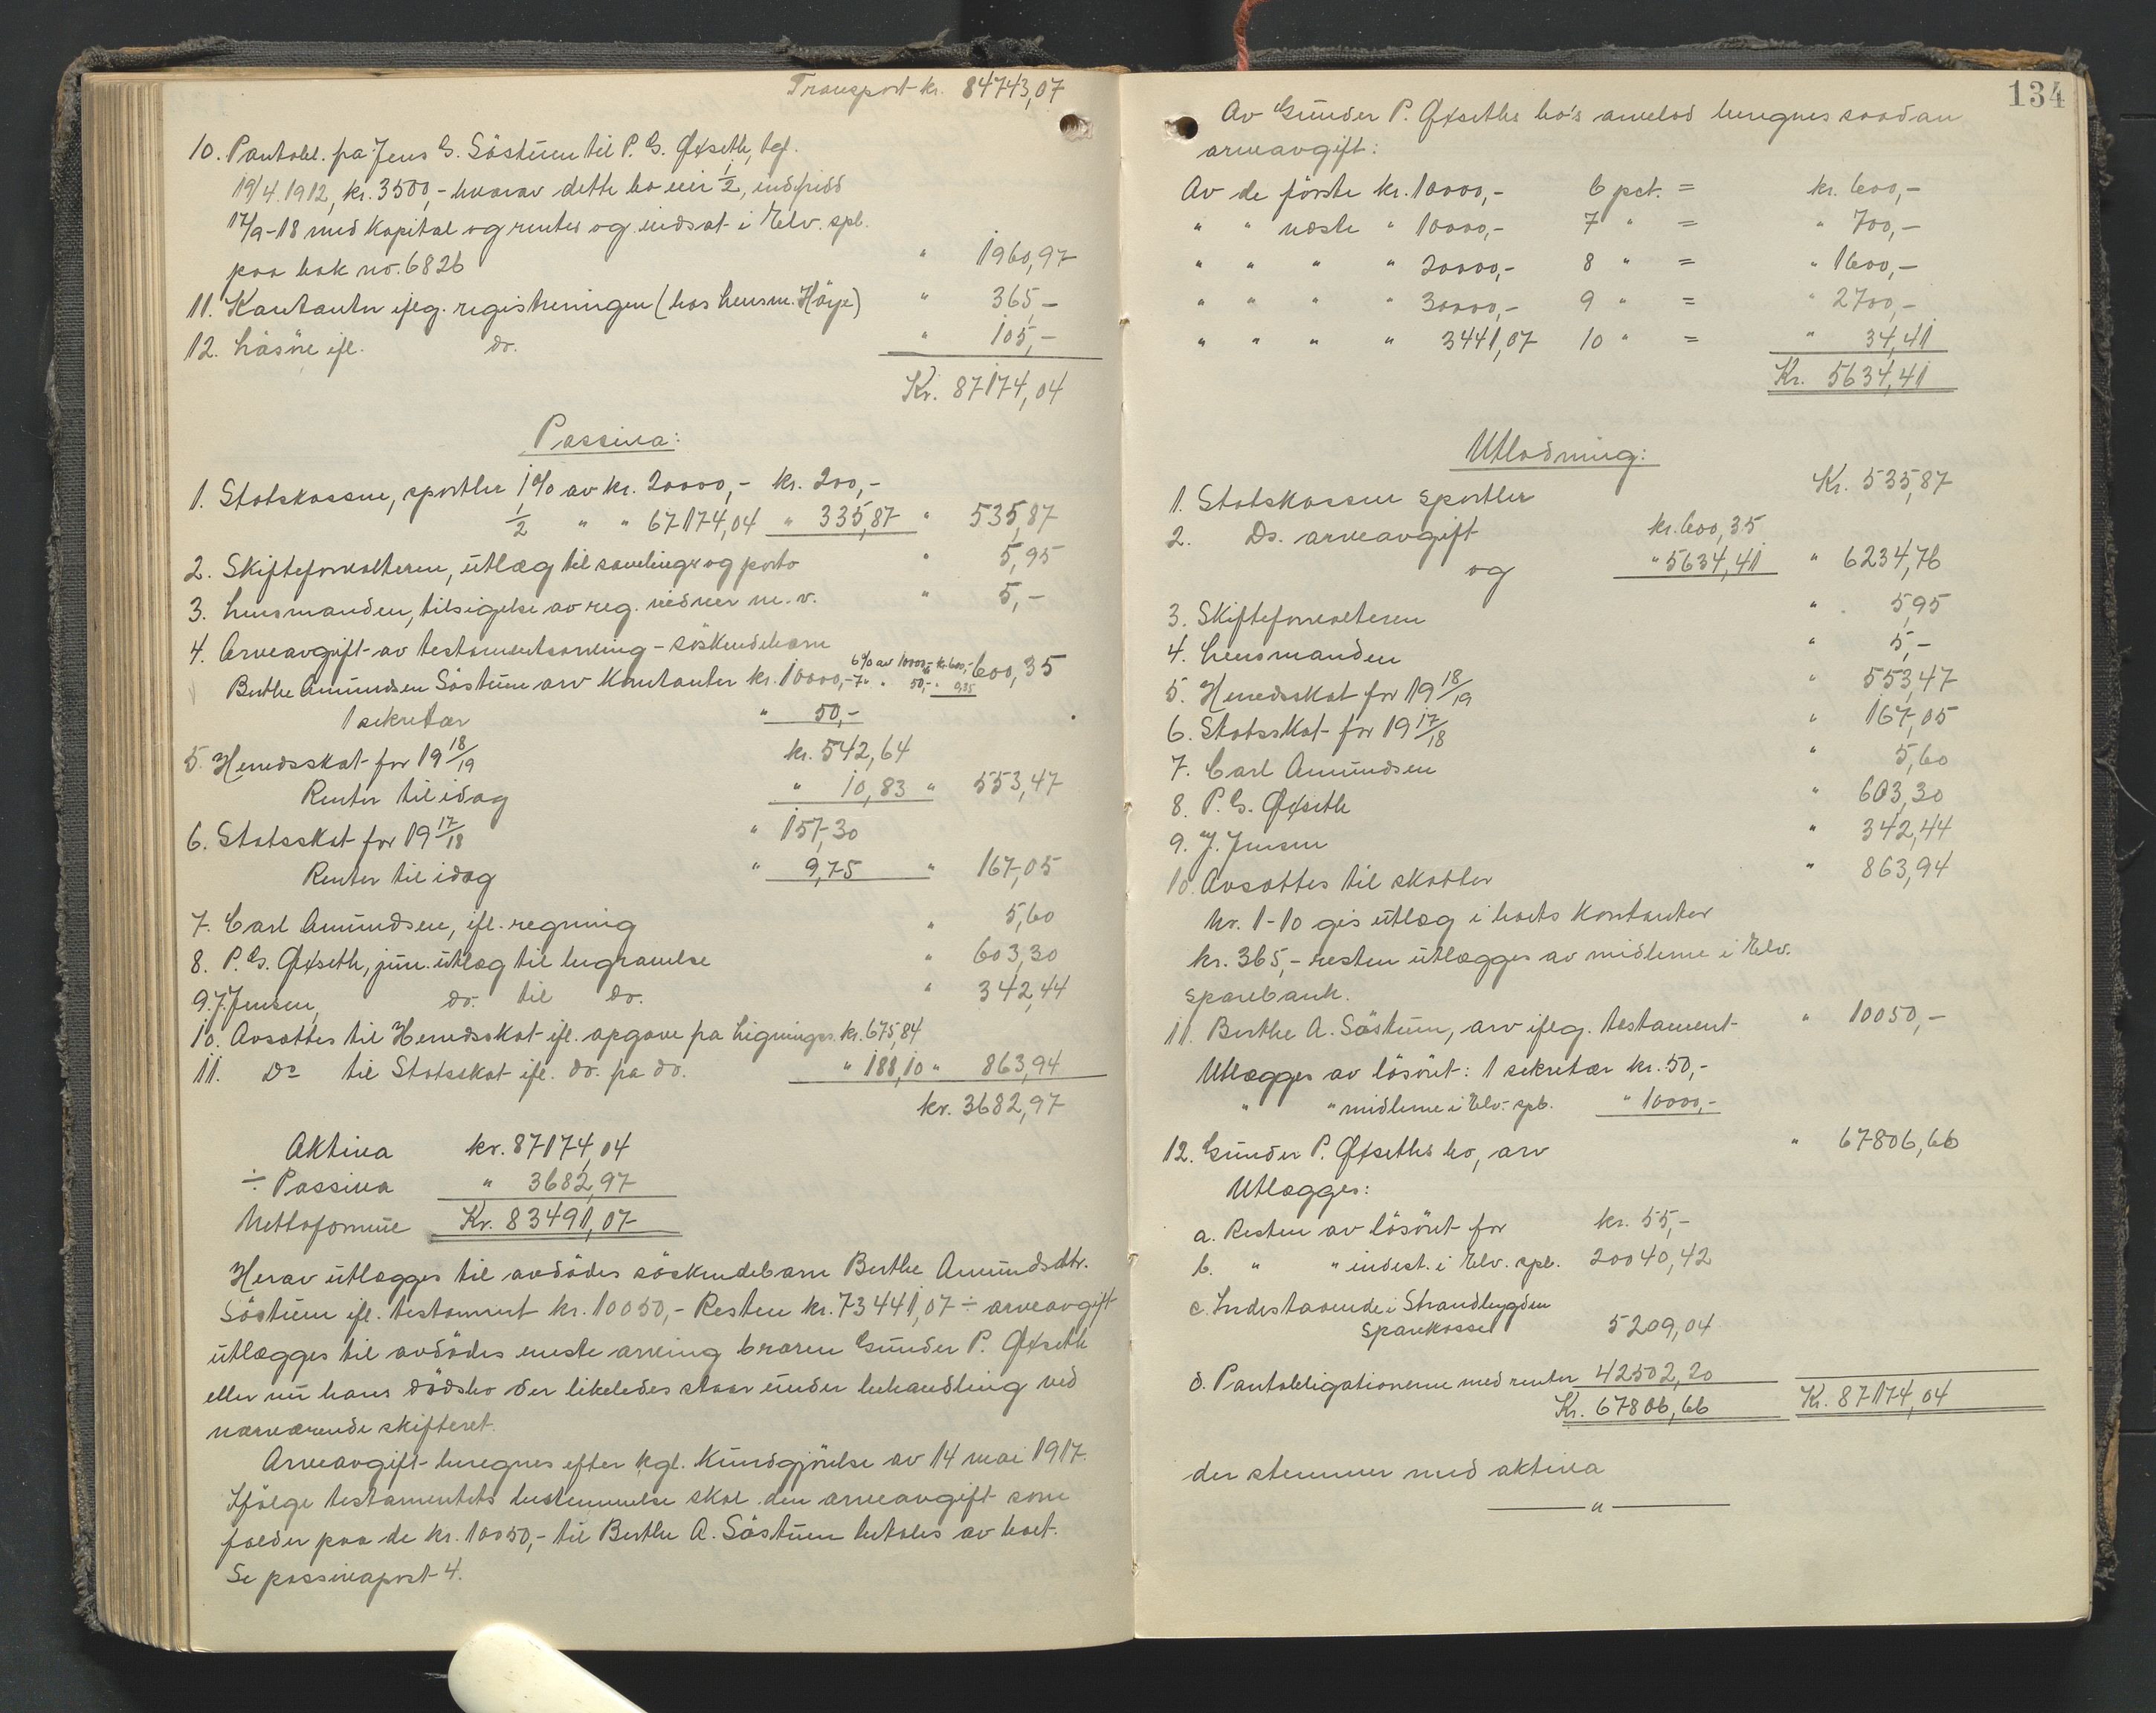 Transport kr. 84743,07
10. Pantobl. fra Jens G. Söstuen til P. G. Qfseth, tgl.
19/4.1912, kr. 3500,- hvorav dette bo eier 1/2, indfridd
17/9-18 med kapital og renter og indsat i Elv. spb.
paa bok no. 6826 " 1960,97
11. Kontanter iflg. registreringen (hos lensm. Höye) " 365,-
12. Lösöre ifl. do. " 105,-
Kr. 87174,04
Passiva:
1. Statskassen, sportler 1% av kr. 20000,- kr. 200,-
1/2 " " 67174,04 " 335,87 " 535,87
2. Skifteforvalteren, utlæg til samlinger og porto " 5,95
3. Lensmanden, tilsigelse av reg. vidner m. v. " 5,-
4. Arveavgift av testamentsarving - söskendebarn
Berthe Amundsen Söstuen arv kontanter kr. 10000,- 6% av 10000,- kr. 600,- 7" " 50,- " 0,35 600,35
1 sekretær " 50,-
5. Herredsskat for 19 18/19 kr. 542,64
Renter til idag " 10,83 " 553,47
6. Statsskat for 19 17/18 " 157,30
Renter til idag " 9,75 " 167,05
7. Carl Amundsen, ifl. regning " 5,60
8. P. G. Qfseth, jun. utlæg til begravelse " 603,30
9. J. Jensen, do. til do. " 342,44
10. Avsættes til Herredsskat ifl. opgave fra Ligningsr. kr. 675,84
11. Do til Statsskat ifl. do. fra do. " 188,10 " 863,94
kr. 3682,97
Aktiva kr. 87174,04
÷ Passiva " 3682,97
Nettoformue Kr. 83491,07
Herav utlægges til avdödes söskendebarn Berthe Amundsdtr.
Söstuen ifl. testament kr. 10050,- Resten kr. 73441,07 ÷ arveavgift
utlægges til avdödes eneste arving broren Gunder P. Qfseth
eller nu hans dödsbo der likeledes staar under behandling ved
nærværende skifteret.
Arveavgift beregnes efter kgl. kundgjörelse av 14 mai 1917.
Ifölge testamentets bestemmelse skal den arveavgift som
falder paa de kr. 10050,- til Berthe A. Söstuen betales av boet.
Se passivapost 4.
134
Av Gunder P. Qfseths bo's arvelod beregnes saadan
arveavgift:
Av de förste kr. 10000,- 6 pct. = kr. 600,-
" " næste " 10000,- 7 " = " 700,-
" " " " 20000,- 8 " = " 1600,-
" " " " 30000,- 9 " = " 2700,-
" " " " 3441,07 10 " = " 34,41
Kr. 5634,41
Utlodning:
1. Statskassen sportler Kr. 535,87
2. Do. arveavgift kr. 600,35
og " 5634,41 " 6234,76
3. Skifteforvalteren " 5,95
4. Lensmanden " 5,-
5. Herredsskat for 19 18/19 " 553,47
6. Statsskat for 19 17/18 " 167,05
7. Carl Amundsen " 5,60
8. P. G. Qfseth " 603,30
9. J. Jensen " 342,44
10. Avsættes til skatter " 863,94
Nr. 1-10 gis utlæg i boets kontanter
kr. 365,- resten utlægges av midlerne i Elv.
sparebank.
11. Berthe A. Söstuen, arv iflg. testament " 10050,-
Utlægges av lösöret: 1 sekretær kr. 50,-
" " midlerne i Elv. spb. " 10000,-
12. Gunder P. Qfseths bo, arv " 67806,66
Utlægges:
a. Resten av lösöret for kr. 55,-
b. " " indest. i Elv. spb. 20040,42
c. Indestaaende i Strandbygden
Sparekasse 5209,04
d. Pantobligationerne med renter 42502,20
Kr. 67806,66 Kr. 87174,04
der stemmer med aktiva